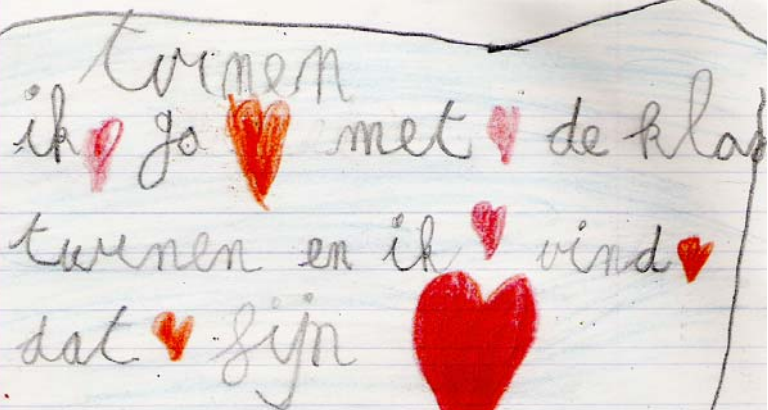 turnen
ik ga met de klas
turnen en ik vind
dat fijn